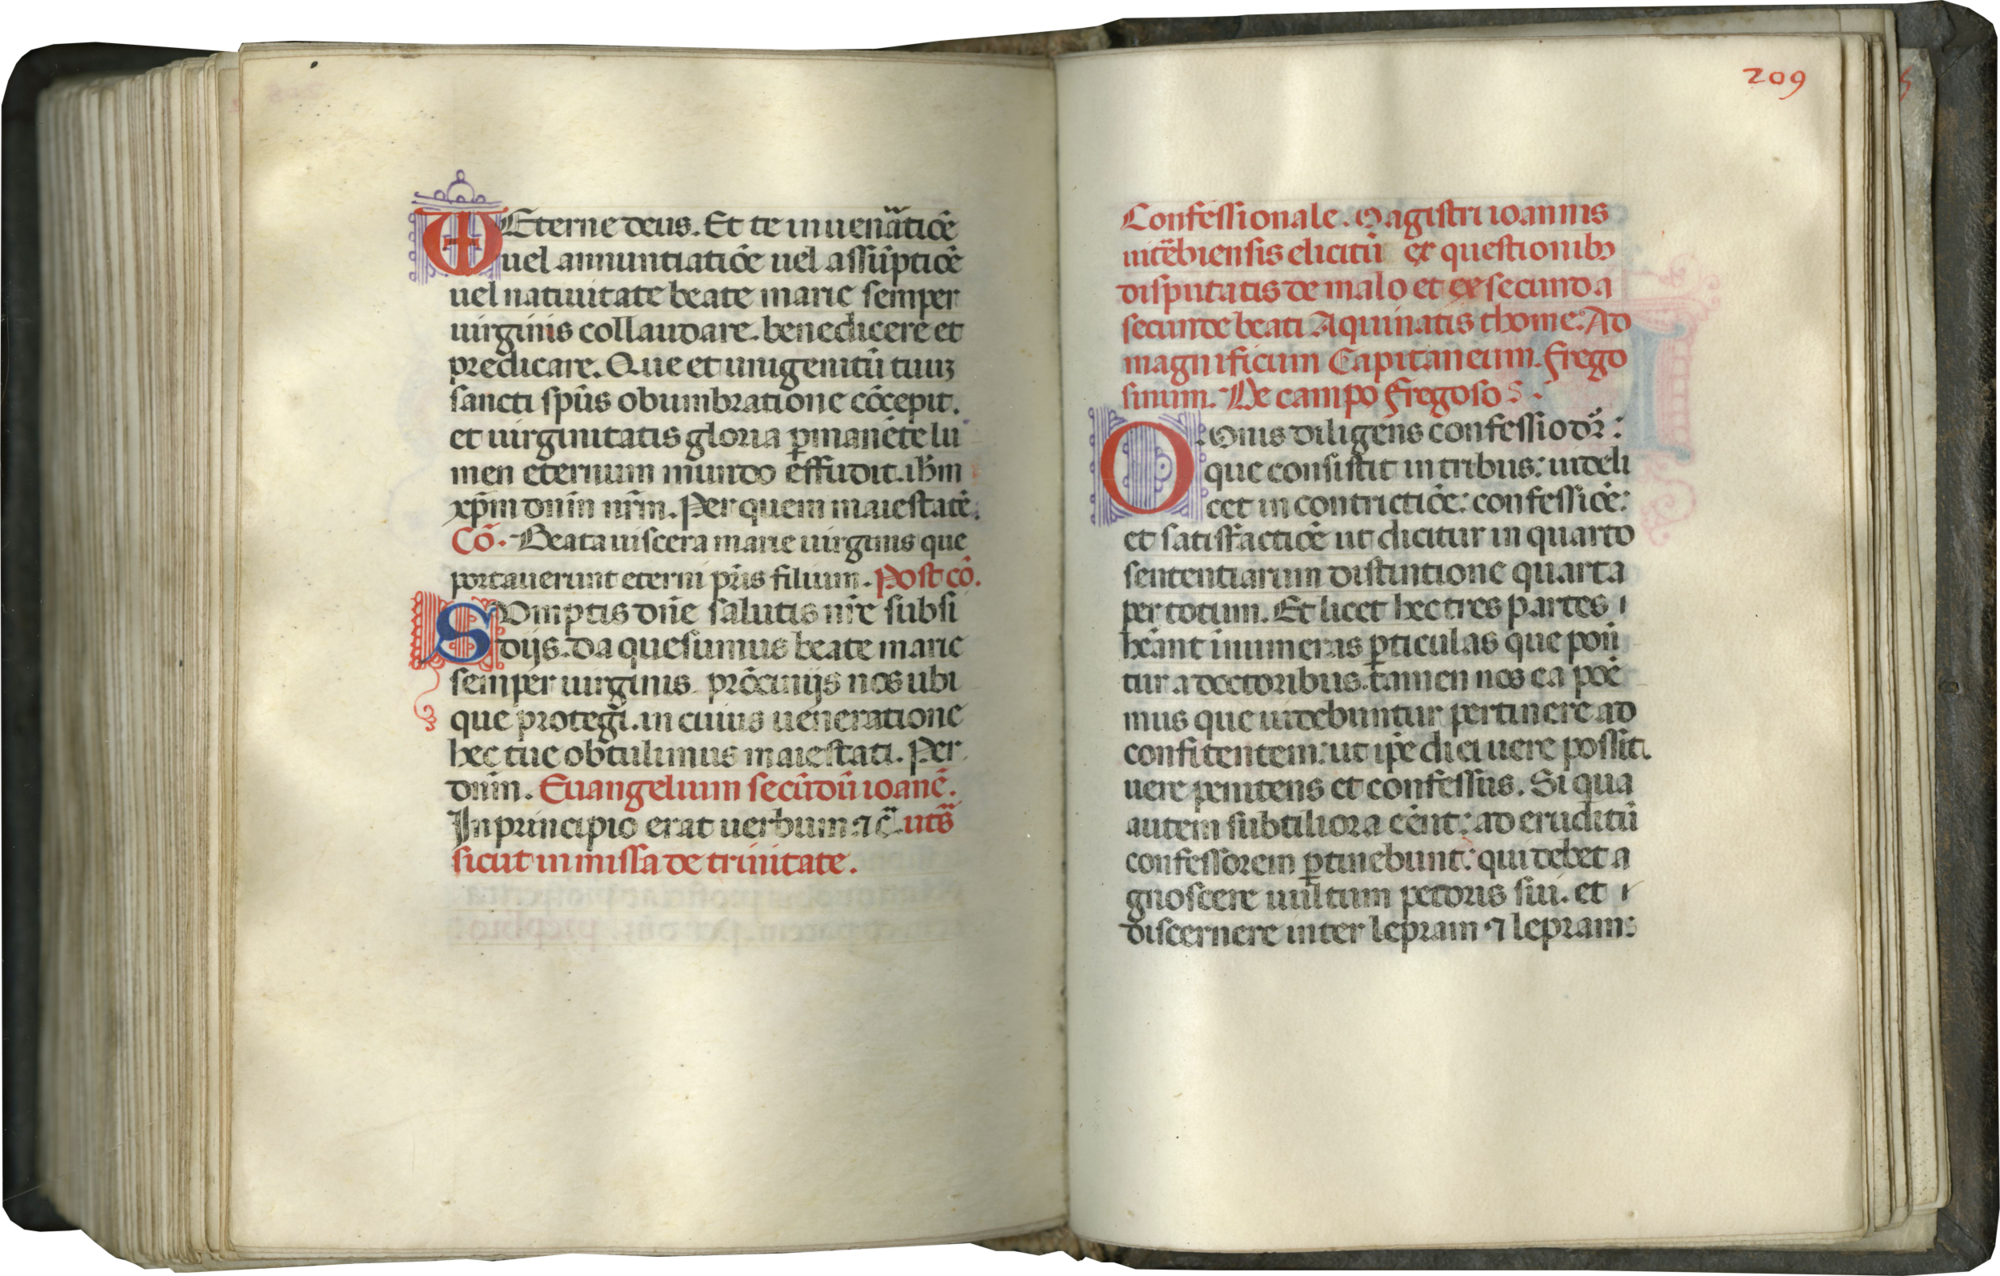 Eterne deus. Et te in uenātiōe
uel annuntiatiōe uel assūptiōe
uel natiuitate beate marie semper
uirginis collaudare. benedicere et
predicare. Que et unigenitū tuuz
sancti sp̄us obumbratione cōcepit.
et uirginitatis gloria ꝑmanēte lu
men eternum mundo effudit. ih̄m
xp̄m dn̄m nr̄m. Per quem maiestatē.
Cō. Beata uiscera marie uirginis que
portauerunt eterni pr̄is filium. Post cō.
SVmptis dn̄e salutis nr̄e subsi
dijs. da quesumus beate marie
semper uirginis prōcinijs nos ubi
que protegi. in cuius ueneratione
hec tue obtulimus maiestati. Per
dn̄m. Euangelium secūdū ioanē.
In principio erat uerbum ⁊ c̄. ut s̄
sicut in missa de trinitate.
209
Confessionale. Magistri ioannis
uitēbiensis elicitū ex questionibꝫ
disputatis de malo et ex secunda
secunde beati Aquinatis thome. Ad
magnificum Capitaneum. Frego
sinum. De campo Fregoso
OMnis diligens confessio dꝝ:
que consistit in tribus: uideli
cet in contrictiōe: confessiōe:
et satisfactiōe ut dicitur in quarto
sententiarum distintione quarta
per totum. Et licet hec tres partes
hēant inumeras ꝑticulas que poni
tur a doctoribus. tamen nos ea poē
mus que uidebuntur pertinere ad
confitentem: ut ip̄e dici uere possit
uere penitens et confessus. Si qua
autem subtiliora cēnt: ad eruditū
confessorem ꝑtinebunt: qui debet a
gnoscere uultum pecoris sui. et i
discernere inter lepram ⁊ lepram: